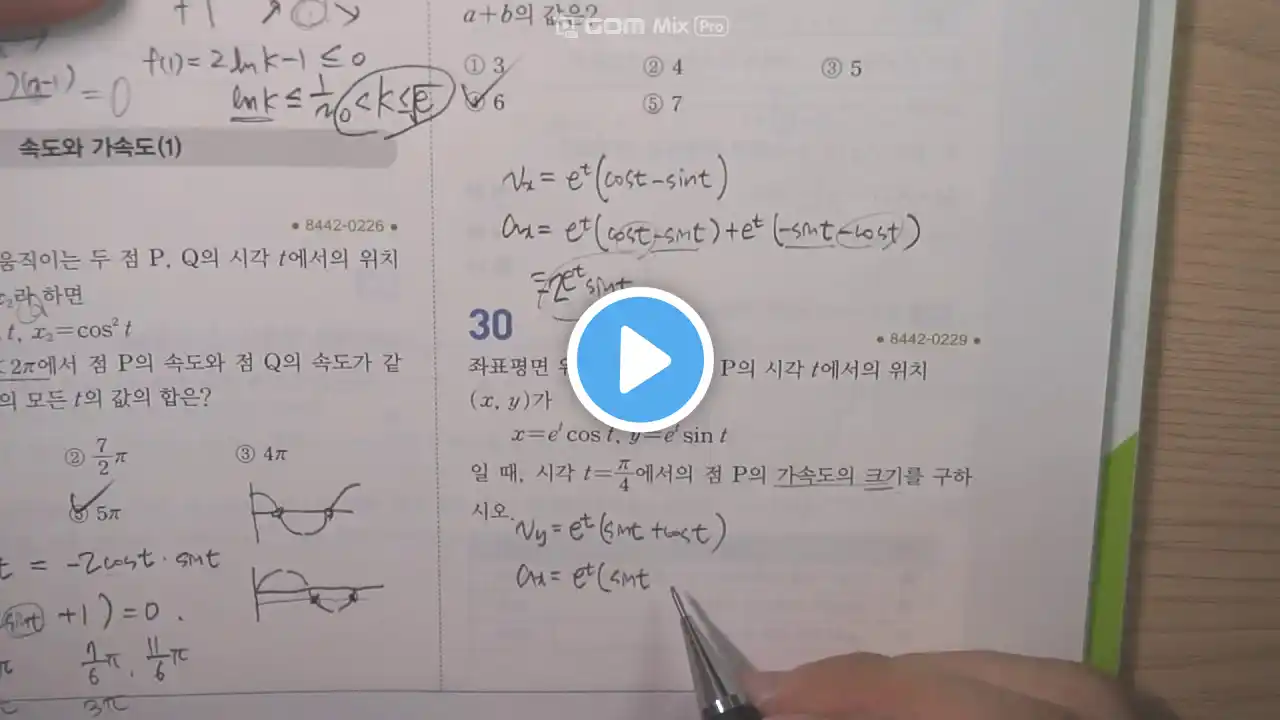 +1
2(n-1) = 0
f(1) = 2 ln k - 1 ≤ 0
ln k ≤ 1/2 0 < k ≤ √e
속도와 가속도(1)
• 8442-0226 •
움직이는 두 점 P, Q의 시각 t에서의 위치
x₂라 하면
t, x₂=cos² t
< 2π에서 점 P의 속도와 점 Q의 속도가 같
의 모든 t의 값의 합은?
② 7/2 π ③ 4π
⑤ 5π
t = -2cost · sint
sint +1) = 0 .
π 7/6 π , 11/6 π
3π
a+b의 값은?
GOM Mix Pro
① 3 ② 4 ③ 5
④ 6 ⑤ 7
Vx = e^t (cost - sint)
ax = e^t (cost - sint) + e^t (-sint - cost)
= -2e^t sint
30
• 8442-0229 •
좌표평면 P의 시각 t에서의 위치
(x, y)가
x=e^t cos t, y=e^t sin t
일 때, 시각 t=π/4에서의 점 P의 가속도의 크기를 구하
시오.
Vy = e^t (sint + cost)
ax = e^t (sint